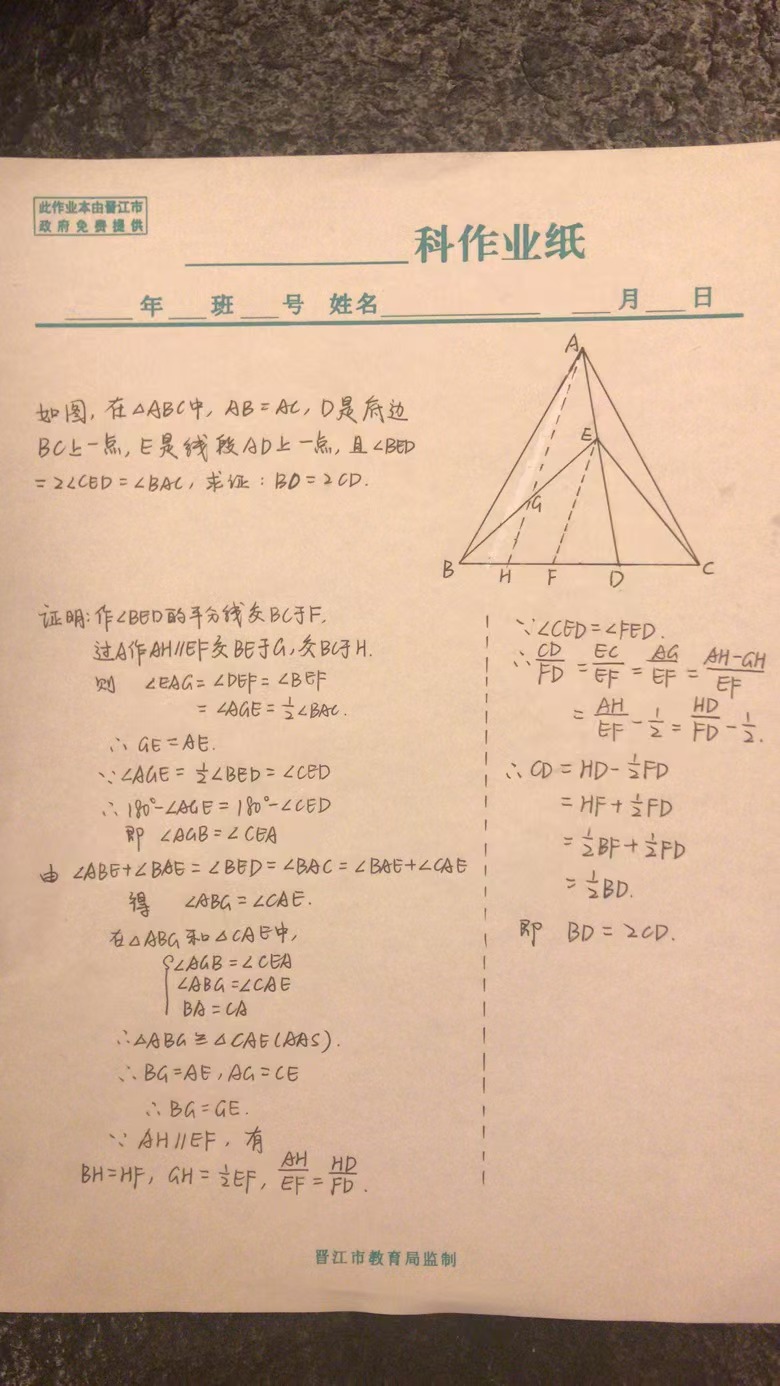 此作业本由晋江市
政府免费提供
科作业纸
年 班 号 姓名 月 日
如图, 在△ABC中, AB=AC, D是底边
BC上一点, E是线段AD上一点, 且∠BED
=2∠CED=∠BAC, 求证: BD=2CD.
A
E
G
B H F D C
证明: 作∠BED的平分线交BC于F,
过A作AH∥EF交BE于G, 交BC于H.
则 ∠EAG=∠DEF=∠BEF
=∠AGE=1/2∠BAC.
∴ GE=AE.
∵∠AGE=1/2∠BED=∠CED
∴180°-∠AGE=180°-∠CED
即 ∠AGB=∠CEA
由 ∠ABE+∠BAE=∠BED=∠BAC=∠BAE+∠CAE
得 ∠ABG=∠CAE.
在△ABG和△CAE中,
{∠AGB=∠CEA
∠ABG=∠CAE
BA=CA
∴△ABG≌△CAE(AAS).
∴BG=AE, AG=CE
∴BG=GE.
∵ AH∥EF, 有
BH=HF, GH=1/2EF, AH/EF=HD/FD.
∵∠CED=∠FED.
∴CD/FD=EC/EF=AG/EF=(AH-GH)/EF
=AH/EF-1/2=HD/FD-1/2.
∴CD=HD-1/2FD
=HF+1/2FD
=1/2BF+1/2FD
=1/2BD.
即 BD=2CD.
晋江市教育局监制